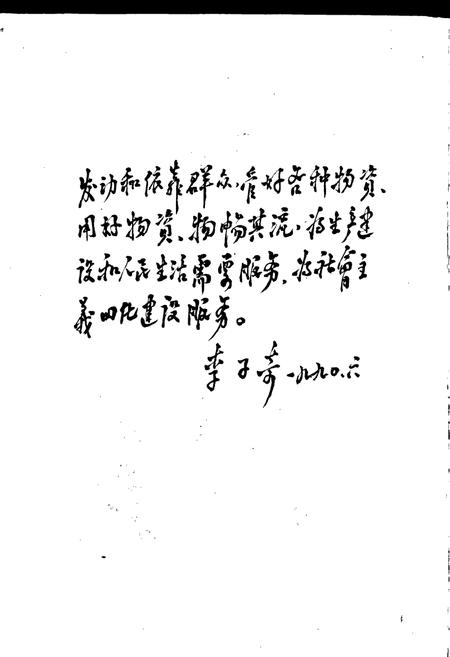 发动和依靠群众,管好各种物資、
用好物資、物畅其流,为生产建
设和人民生活需要服务,为社會主
義四化建设服务。
李子奇 一九九〇.六